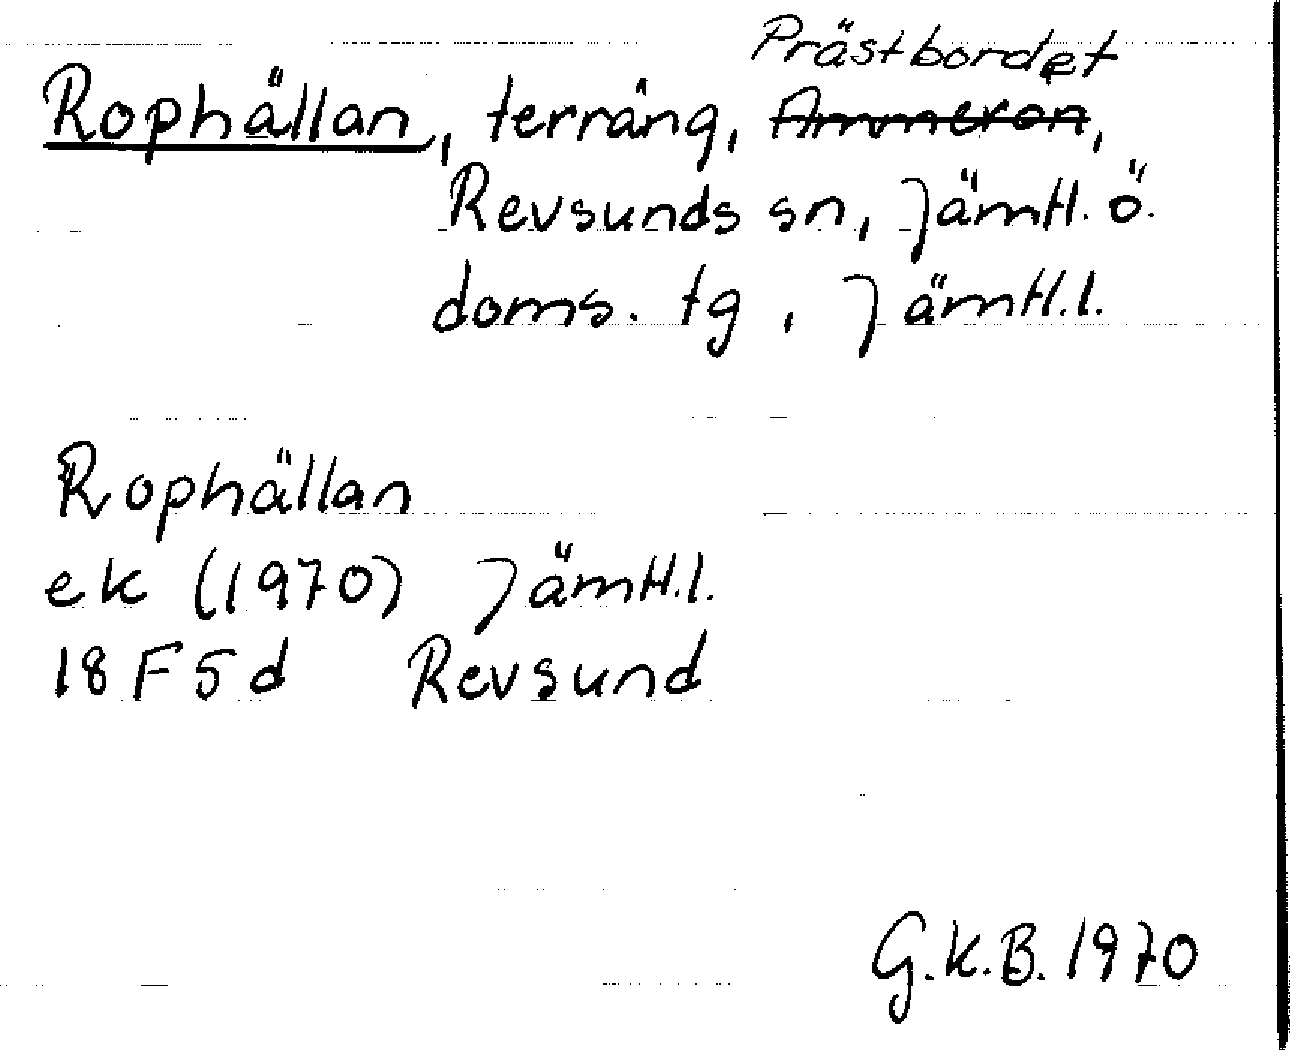 Prästbordet
Rophällan, terräng, Ammerön,
Revsunds sn, Jämtl. ö.
doms. tg, Jämtl.l.
Rophällan
ek (1970) Jämtl.l.
18 F 5 d Revsund
G.K.B. 1970